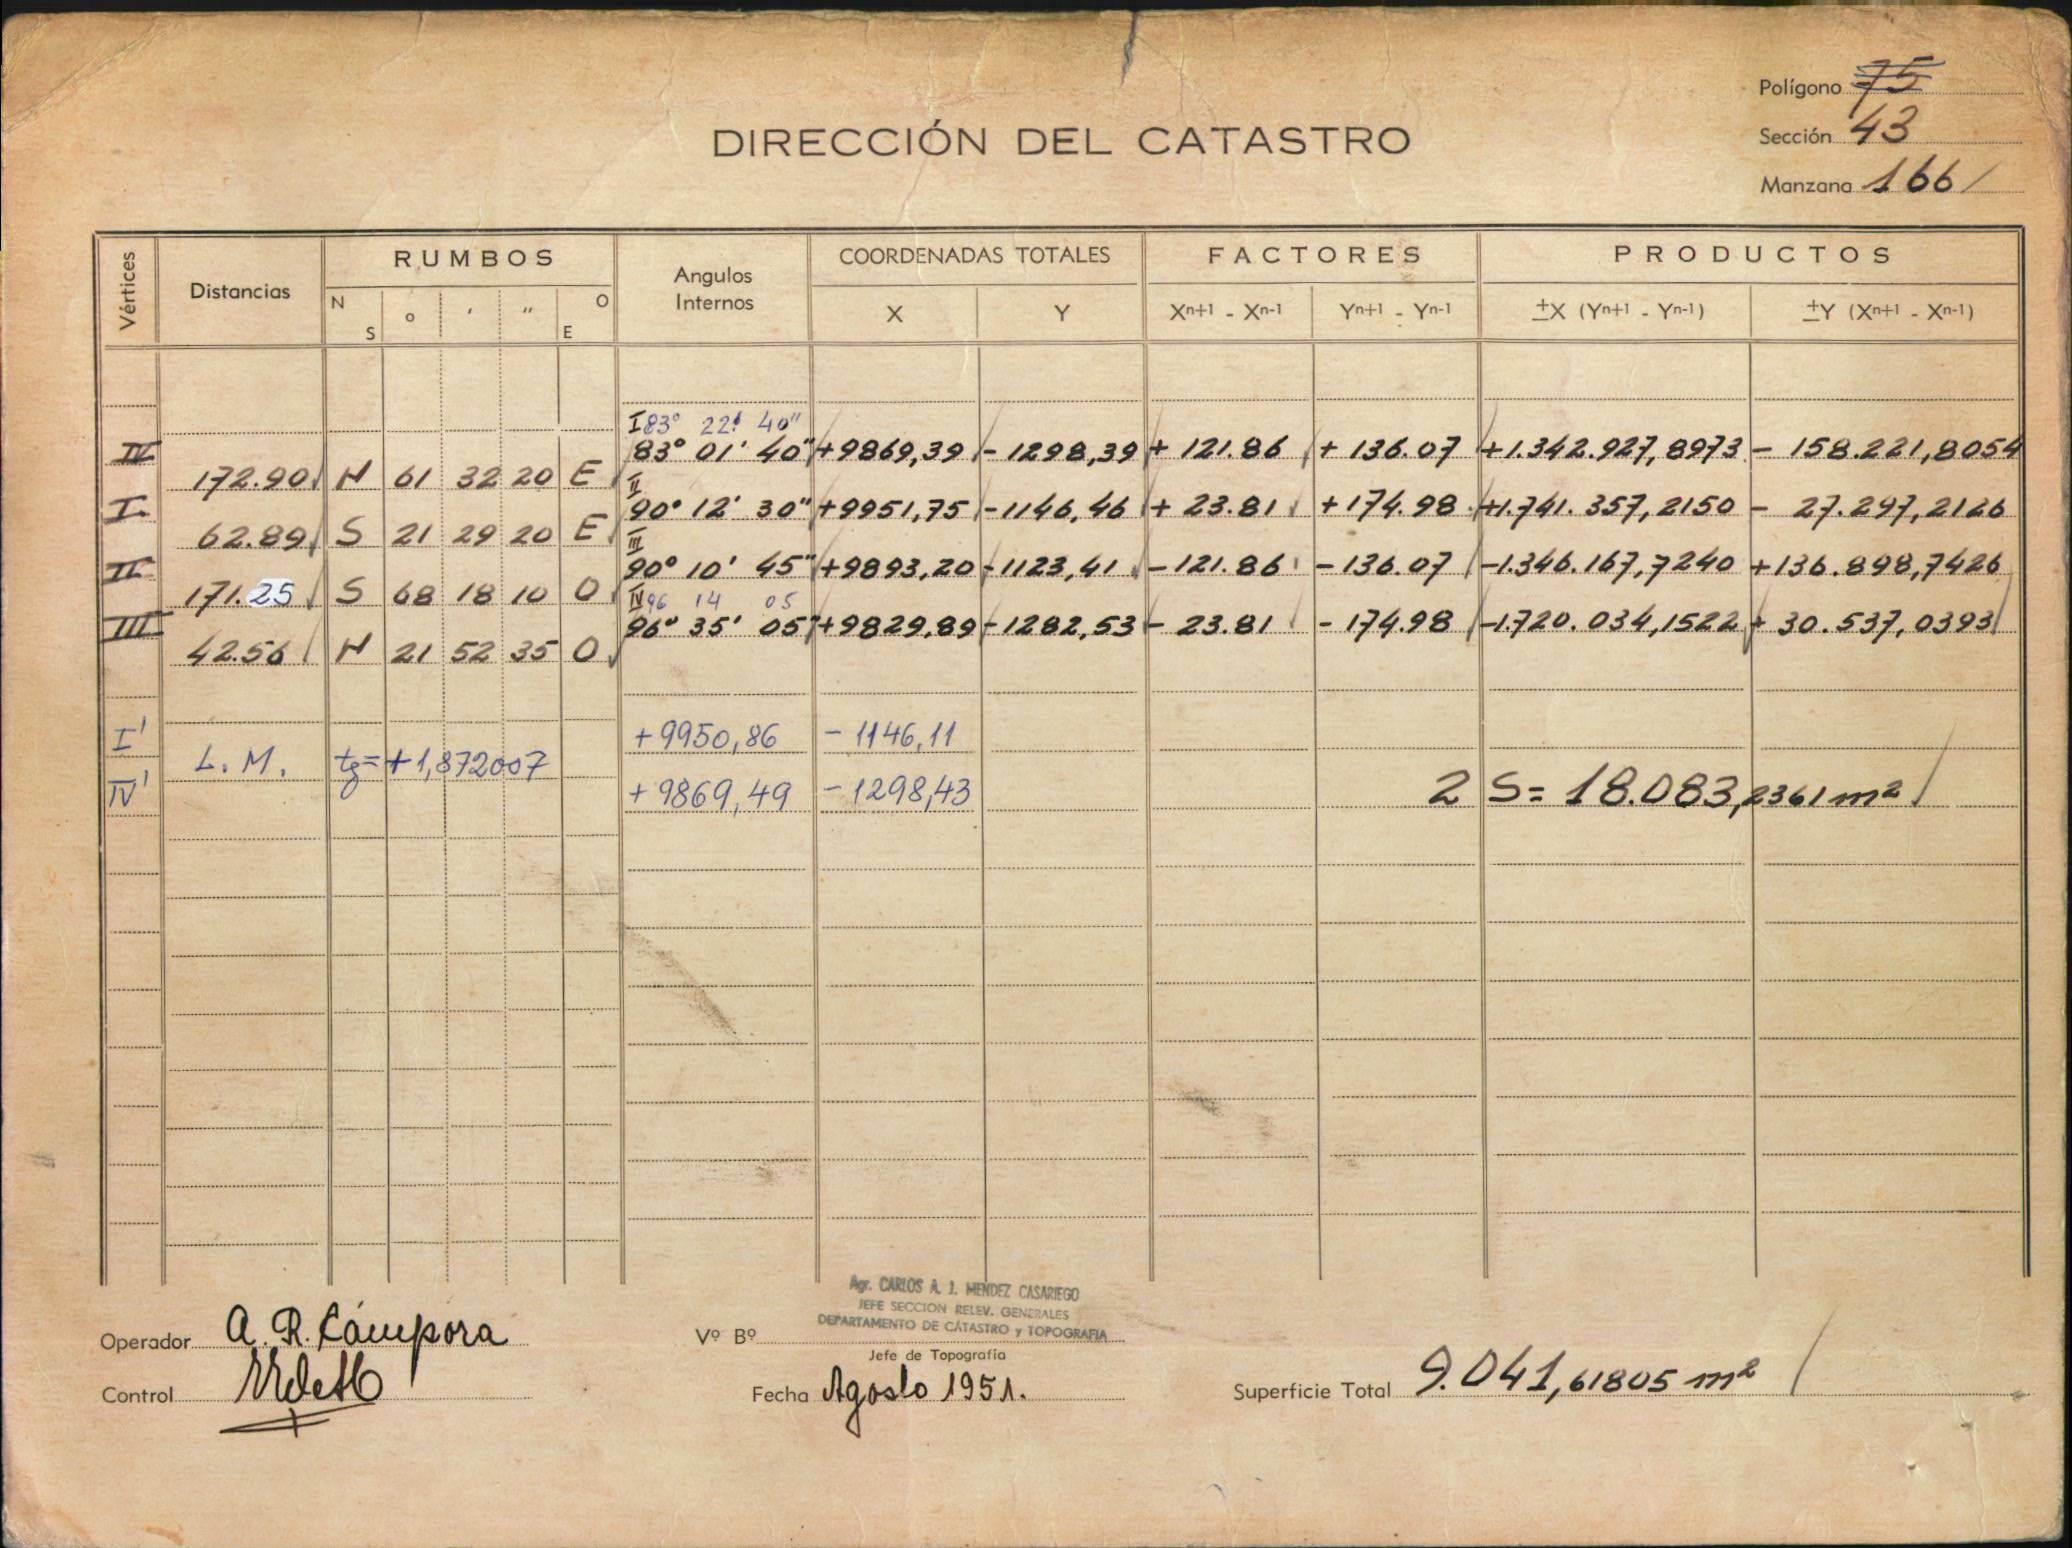 Polígono 75
Sección 43
Manzana 166
DIRECCIÓN DEL CATASTRO
Vértices
Distancias
RUMBOS
N S ° ' " O E
Angulos Internos
COORDENADAS TOTALES
X Y
FACTORES
Xn+1 - Xn-1 Yn+1 - Yn-1
PRODUCTOS
±X (Yn+1 - Yn-1) ±Y (Xn+1 - Xn-1)
I 83° 22' 40"
IV 83° 01' 40" +9869,39 -1298,39 + 121.86 + 136.07 +1.342.927,8973 - 158.221,8054
172.90 N 61 32 20 E II
I 90° 12' 30" +9951,75 -1146,46 + 23.81 +174.98 +1.741.357,2150 - 27.297,2126
62.89 S 21 29 20 E III
II 90° 10' 45" +9893,20 -1123,41 -121.86 -136.07 -1.346.167,7240 +136.898,7426
171.25 S 68 18 10 O IV 96 14 05
III 96° 35' 05" +9829,89 -1282,53 - 23.81 - 174.98 -1.720.034,1522 + 30.537,0393
42.56 N 21 52 35 O
I' +9950,86 - 1146,11
L. M. tg= +1,872007
IV' +9869,49 - 1298,43 2 S= 18.083,2361 m²
Agr. CARLOS A. J. MENDEZ CASARIEGO
JEFE SECCION RELEV. GENERALES
DEPARTAMENTO DE CATASTRO y TOPOGRAFIA
Operador A. R. Cámpora
Vº Bº
Jefe de Topografía
Control
Fecha Agosto 1951.
Superficie Total 9.041,61805 m²